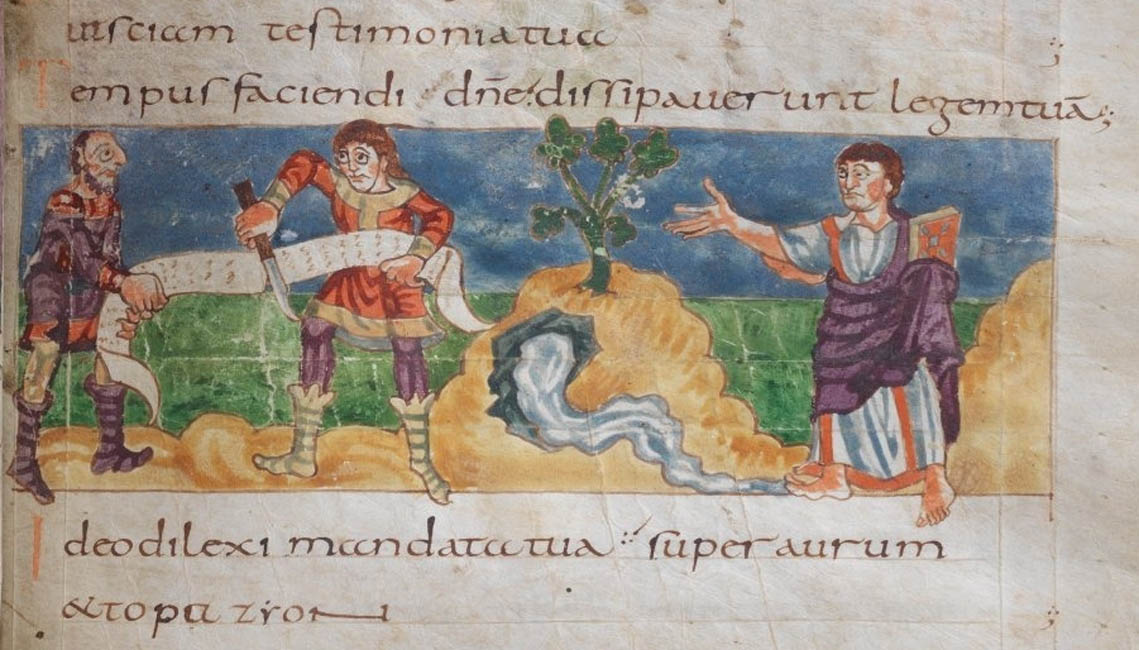 ut sciam testimonia tua ;
Tempus faciendi dñe: dissipauerunt legem tuā;
Ideo dilexi mandata tua super aurum
& topazyon ;